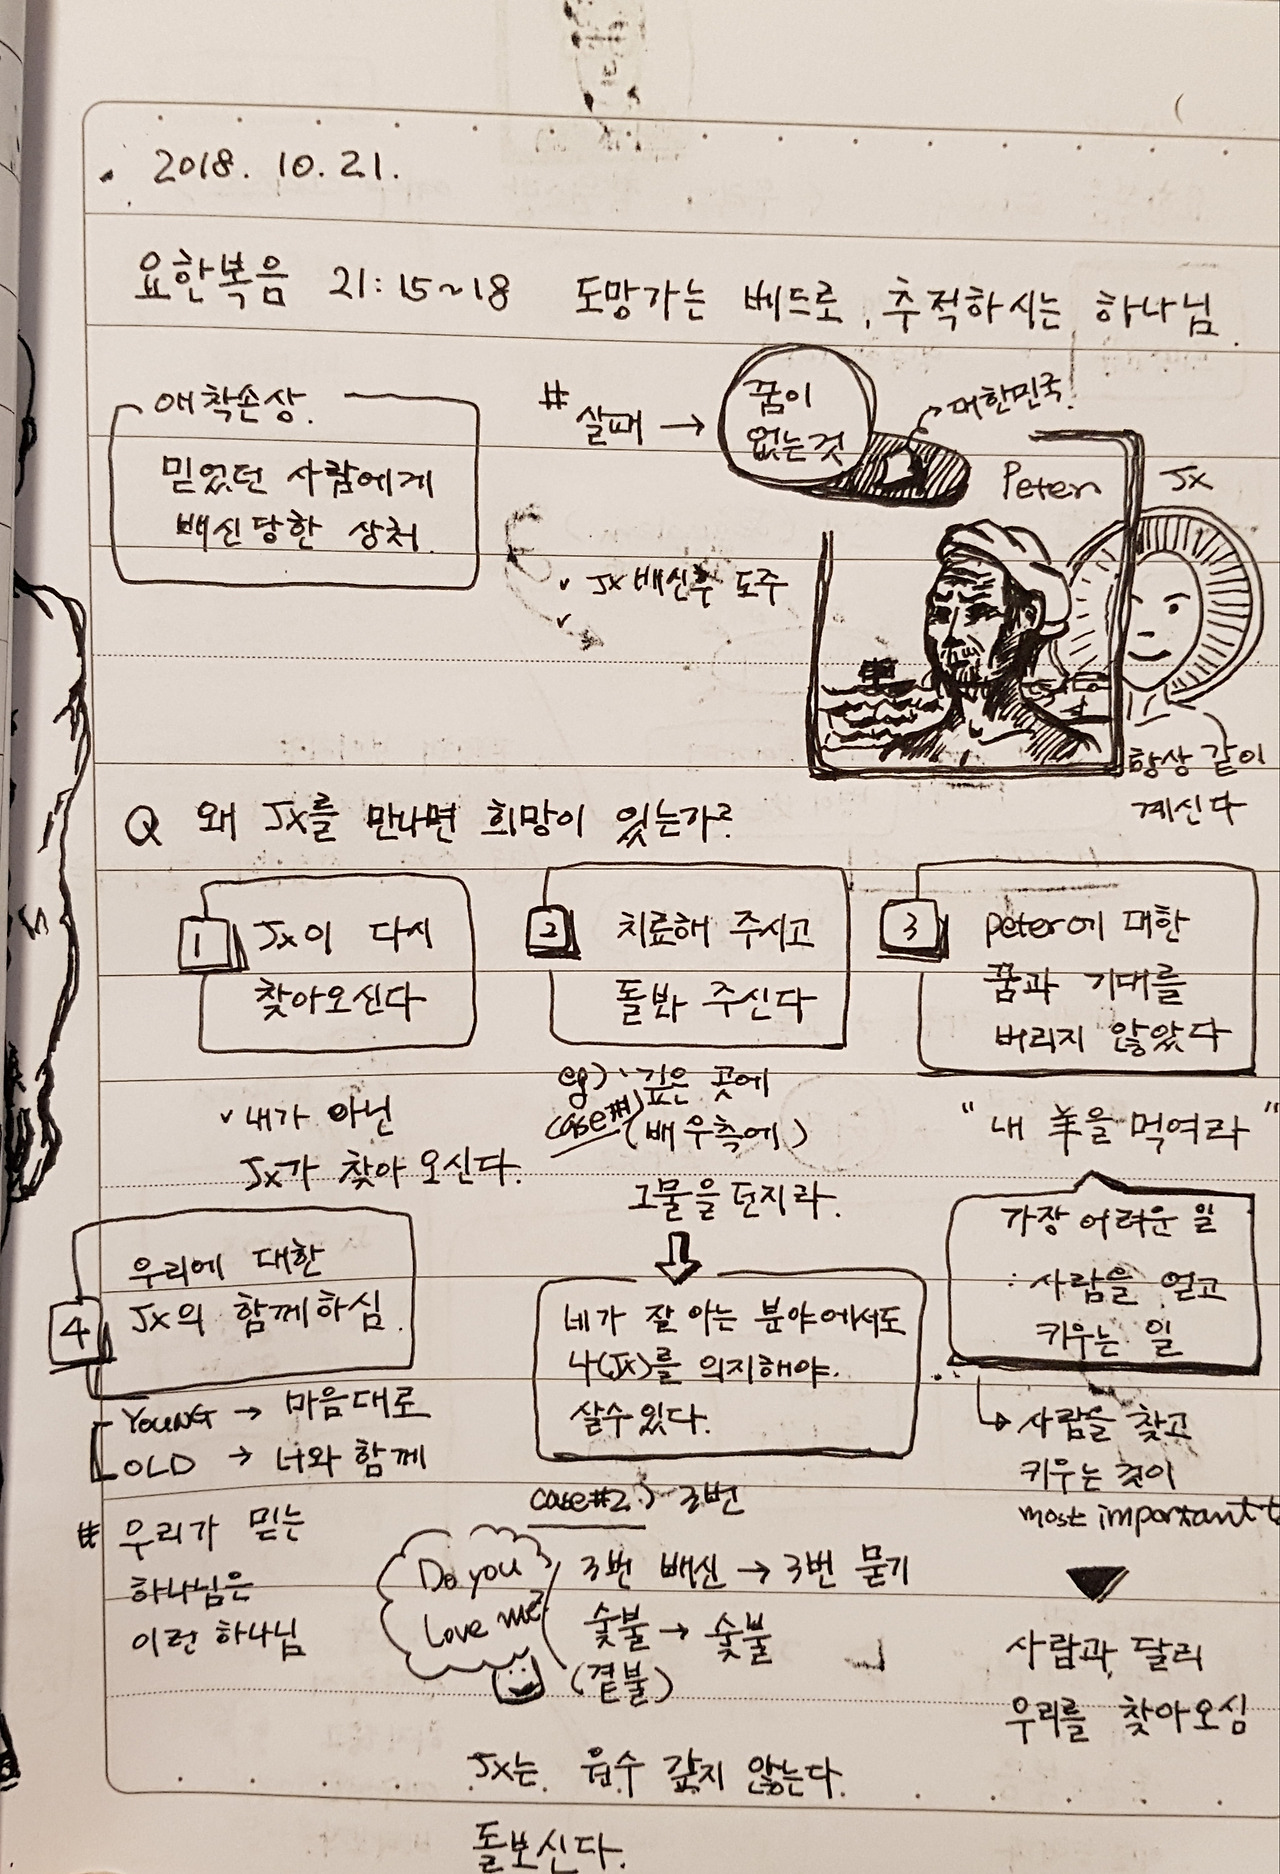 2018. 10. 21.
요한복음 21:15~18 도망가는 베드로, 추적하시는 하나님
애착손상.
믿었던 사람에게
배신당한 상처.
# 실패 →
꿈이
없는것
대한민국!
Peter
Jx
v Jx 배신후 도주
v
항상 같이
계신다
Q 왜 Jx를 만나면 희망이 있는가?
1
Jx이 다시
찾아오신다
v 내가 아닌
Jx가 찾아 오신다.
2
치료해 주시고
돌봐 주신다
eg) 깊은 곳에
case#1) (배 우측에)
그물을 던지라.
네가 잘 아는 분야에서도
나(Jx)를 의지해야.
살수 있다.
3
peter에 대한
꿈과 기대를
버리지 않았다
"내 羊을 먹여라"
가장 어려운 일
: 사람을 얻고
키우는 일
사람을 찾고
키우는 것이
most important
사람과 달리
우리를 찾아오심
4
우리에 대한
Jx의 함께하심.
YOUNG → 마음대로
OLD → 너와 함께
# 우리가 믿는
하나님은
이런 하나님
case#2) 3번
Do you
Love me?
3번 배신 → 3번 묻기
숯불 → 숯불
(곁불)
Jx는 원수 갚지 않는다.
돌보신다.